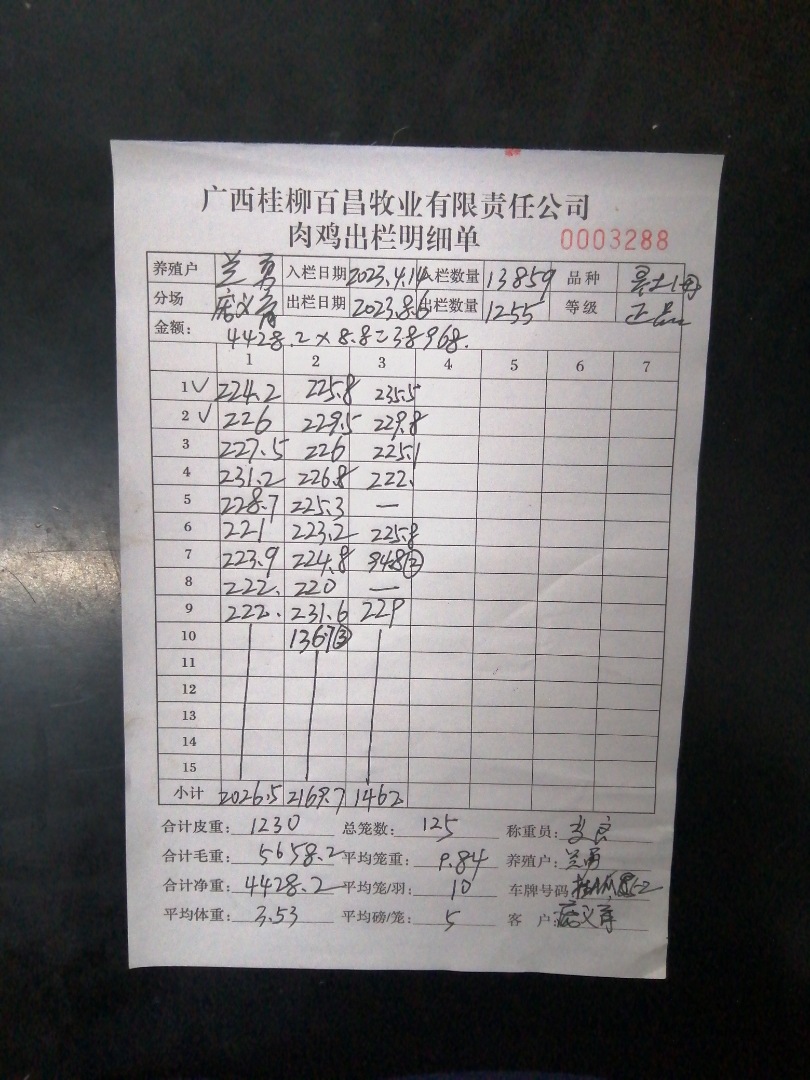 广西桂柳百昌牧业有限责任公司
肉鸡出栏明细单 0003288
养殖户 兰勇 入栏日期 2023.4.14 入栏数量 13859 品种
分场 出栏日期 2023.8.6 出栏数量 1255 等级 正品
金额: 4428.2×8.8=38968.
1 2 3 4 5 6 7
1 ✓ 224.2 225.8 235.5
2 ✓ 226 229.5 229.8
3 227.5 226 225.1
4 231.2 226.8 222.
5 228.7 225.3 —
6 221 223.2 225.8
7 223.9 224.8 94.8②
8 222. 220 —
9 222. 231.6 229
10 136.7③
11
12
13
14
15
小计 2026.5 2169.7 1462
合计皮重: 1230 总笼数: 125 称重员:
合计毛重: 5658.2 平均笼重: 9.84 养殖户: 兰勇
合计净重: 4428.2 平均笼/羽: 10 车牌号码
平均体重: 3.53 平均磅/笼: 5 客户: